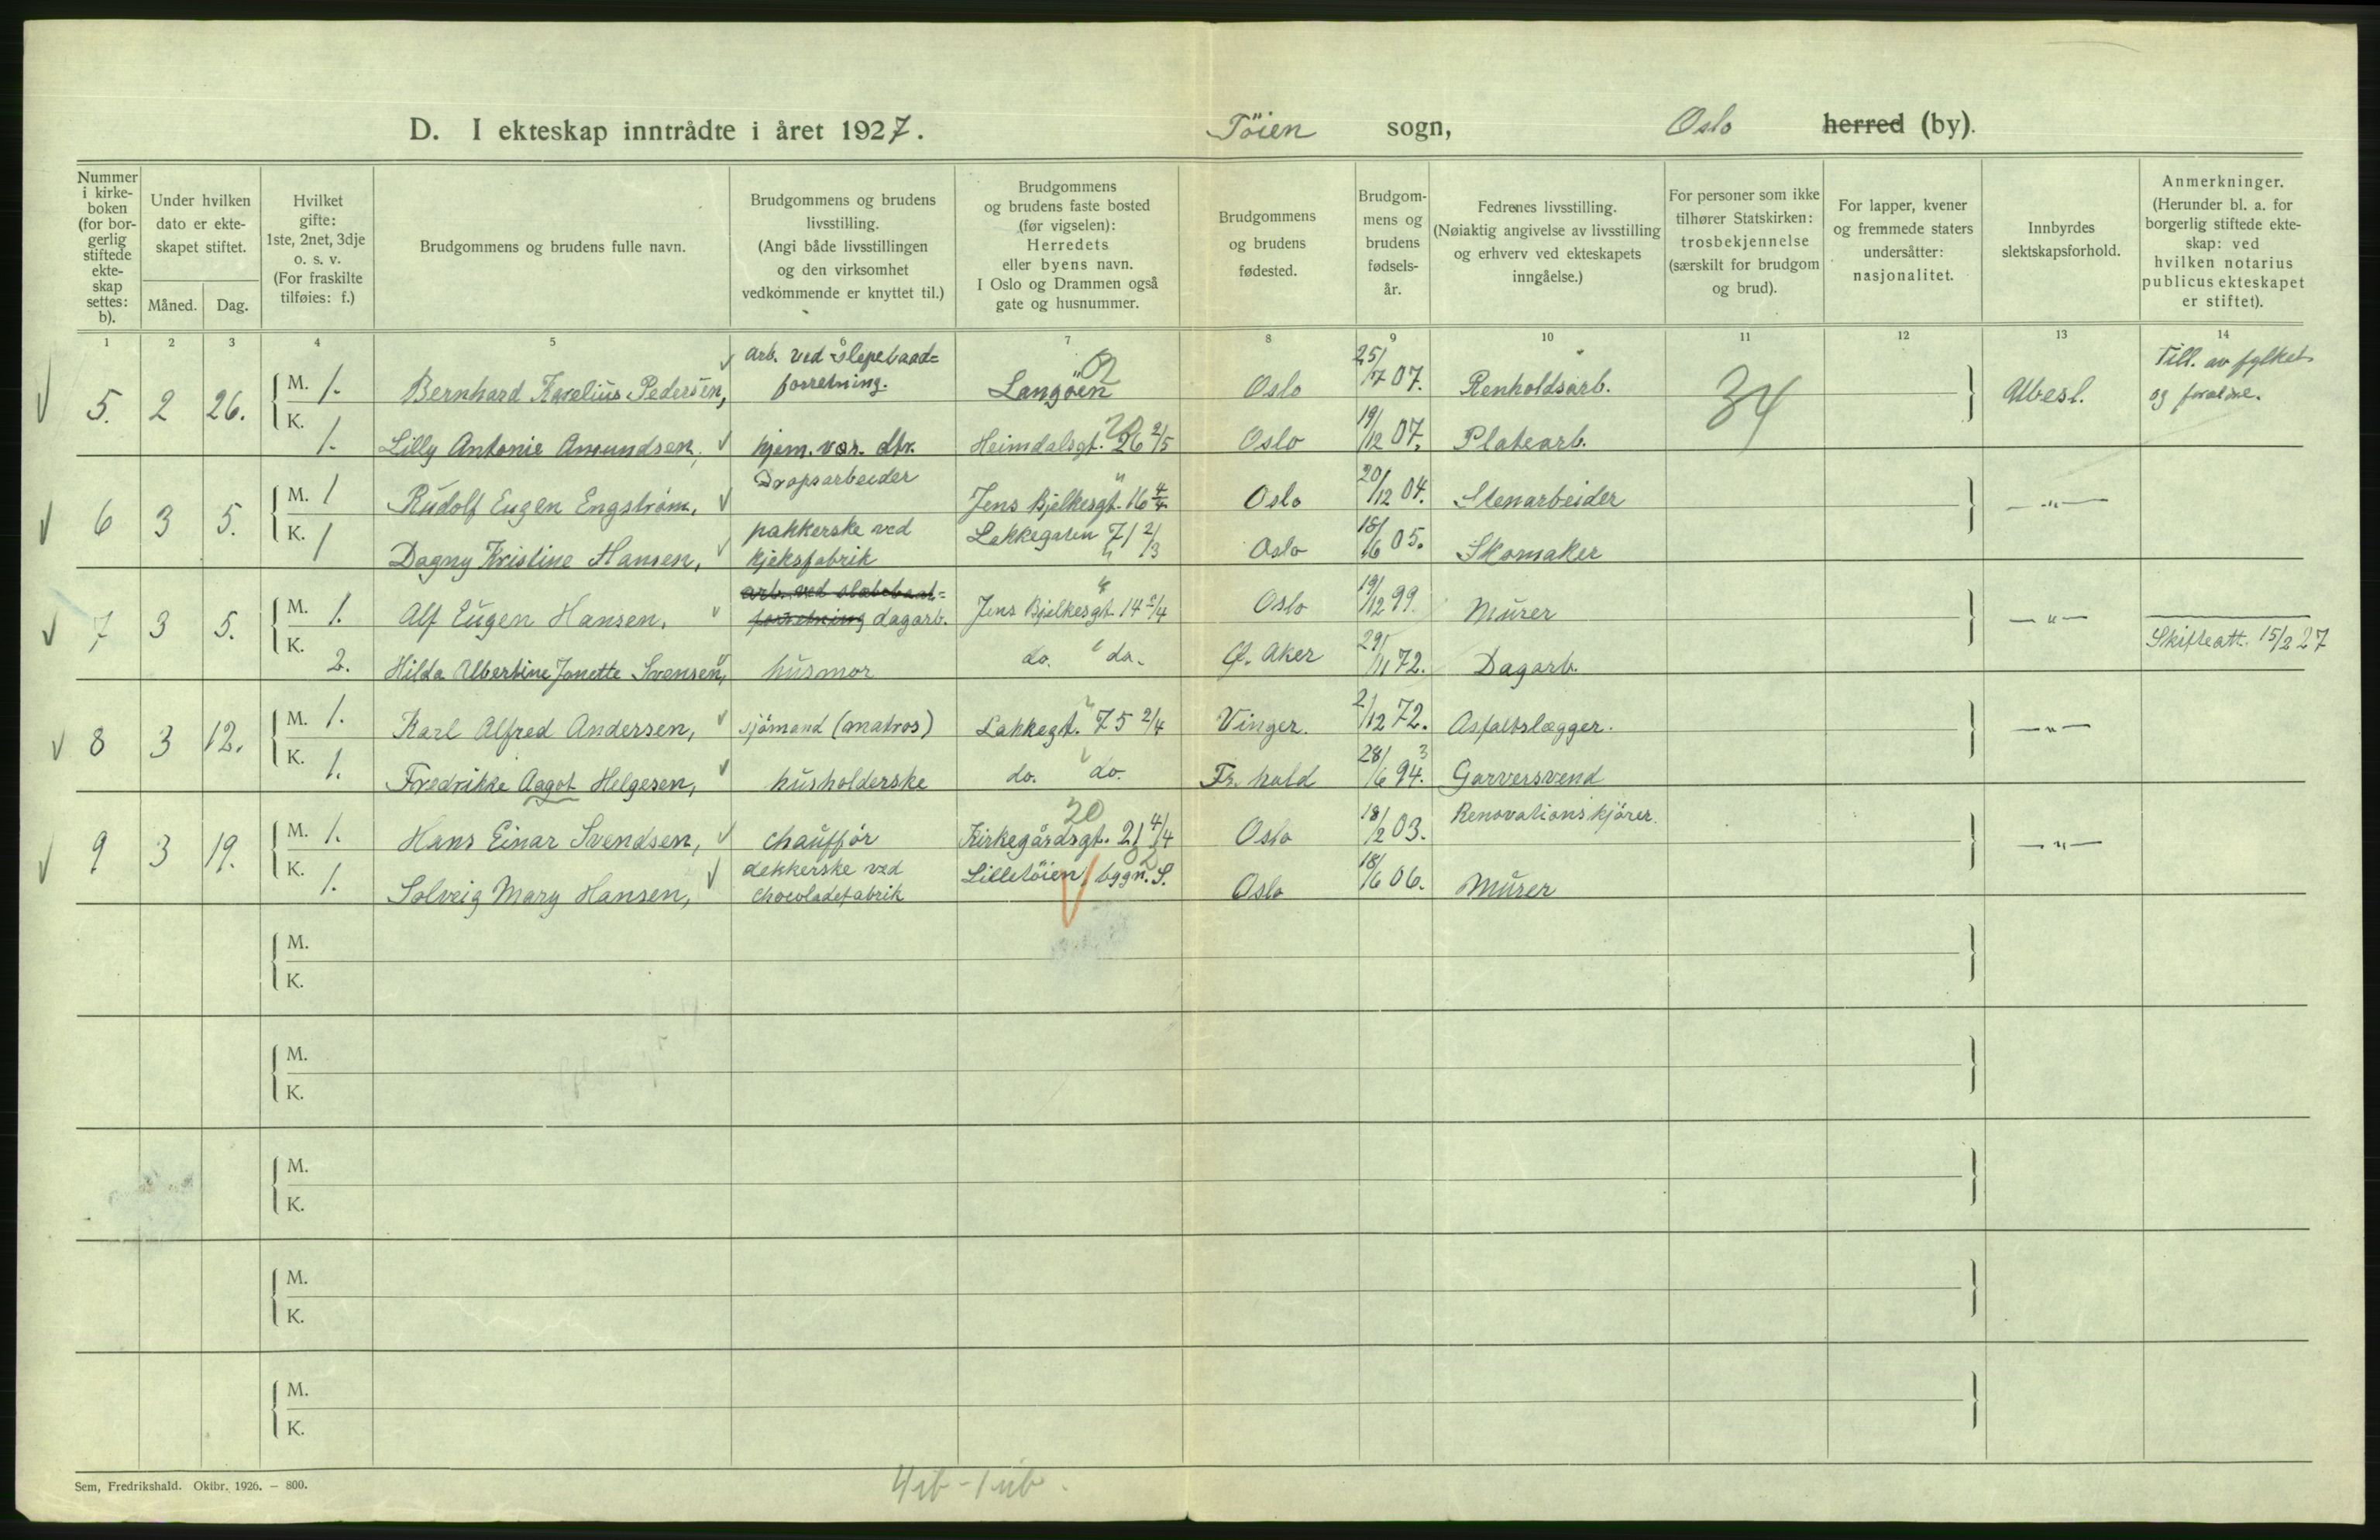 D. I ekteskap inntrådte i året 1927. Töien sogn, Oslo herred (by).
Nummer i kirkeboken (for borgerlig stiftede ekteskap settes: b).
Under hvilken dato er ekteskapet stiftet.
Måned. Dag.
Hvilket gifte: 1ste, 2net, 3dje o. s. v. (For fraskilte tilføies: f.)
Brudgommens og brudens fulle navn.
Brudgommens og brudens livsstilling. (Angi både livsstillingen og den virksomhet vedkommende er knyttet til.)
Brudgommens og brudens faste bosted (før vigselen): Herredets eller byens navn. I Oslo og Drammen også gate og husnummer.
Brudgommens og brudens fødested.
Brudgommens og brudens fødselsår.
Fedrenes livsstilling. (Nøiaktig angivelse av livsstilling og erhverv ved ekteskapets inngåelse.)
For personer som ikke tilhører Statskirken: trosbekjennelse (særskilt for brudgom og brud).
For lapper, kvener og fremmede staters undersåtter: nasjonalitet.
Innbyrdes slektskapsforhold.
Anmerkninger. (Herunder bl. a. for borgerlig stiftede ekteskap: ved hvilken notarius publicus ekteskapet er stiftet).
1 2 3 4 5 6 7 8 9 10 11 12 13 14
5. 2 26. M. 1. Bernhard Karelius Pedersen, arb. ved slepebaad=forretning. Langöen Oslo 25/7 07. Renholdsarb. 34 Ubesl. Till. av fylket og foreldre.
K. 1. Lilly Antonie Amundsen, hjem. vær. dtr. Heimdalsgt. 26 2/5 Oslo 19/12 07. Platearb.
6 3 5. M. 1 Rudolf Eugen Engstrøm, Dropsarbeider Jens Bjelkesgt. 16 4/4 Oslo 20/12 04. Stenarbeider —"—
K. 1 Dagny Kristine Hansen, pakkerske ved kjeksfabrik Lakkegaten 71 2/3 Oslo 18/6 05. Skomaker
7 3 5. M. 1. Alf Eugen Hansen, dagarb. Jens Bjelkesgt. 14 /4 Oslo 19/12 99. Murer —"—
K. 2. Hilda Albertine Janette Svensen, husmor do. do. Ø. Aker 29/11 72. Dagarb. Skifteatt. 15/2 27
8 3 12. M. 1. Karl Alfred Andersen, sjömand (matros) Lakkegt. 75 2/4 Vinger. 2/12 72. Asfaltslægger. —"—
K. 1. Fredrikke Aagot Helgesen, husholderske do. do. Fr. hald 28/6 94. Garversvend
9 3 19. M. 1. Hans Einar Svendsen, chauffør Kirkegårdsgt. 21 4/4 Oslo 18/2 03. Renovationskjörer. —"—
K. 1. Solveig Mary Hansen, dekkerske ved chocoladefabrik Lilletöien, bygn. S. Oslo 18/6 06. Murer
M.
K.
M.
K.
M.
K.
M.
K.
M.
K.
Sem, Fredrikshald. Oktbr. 1926. — 800.